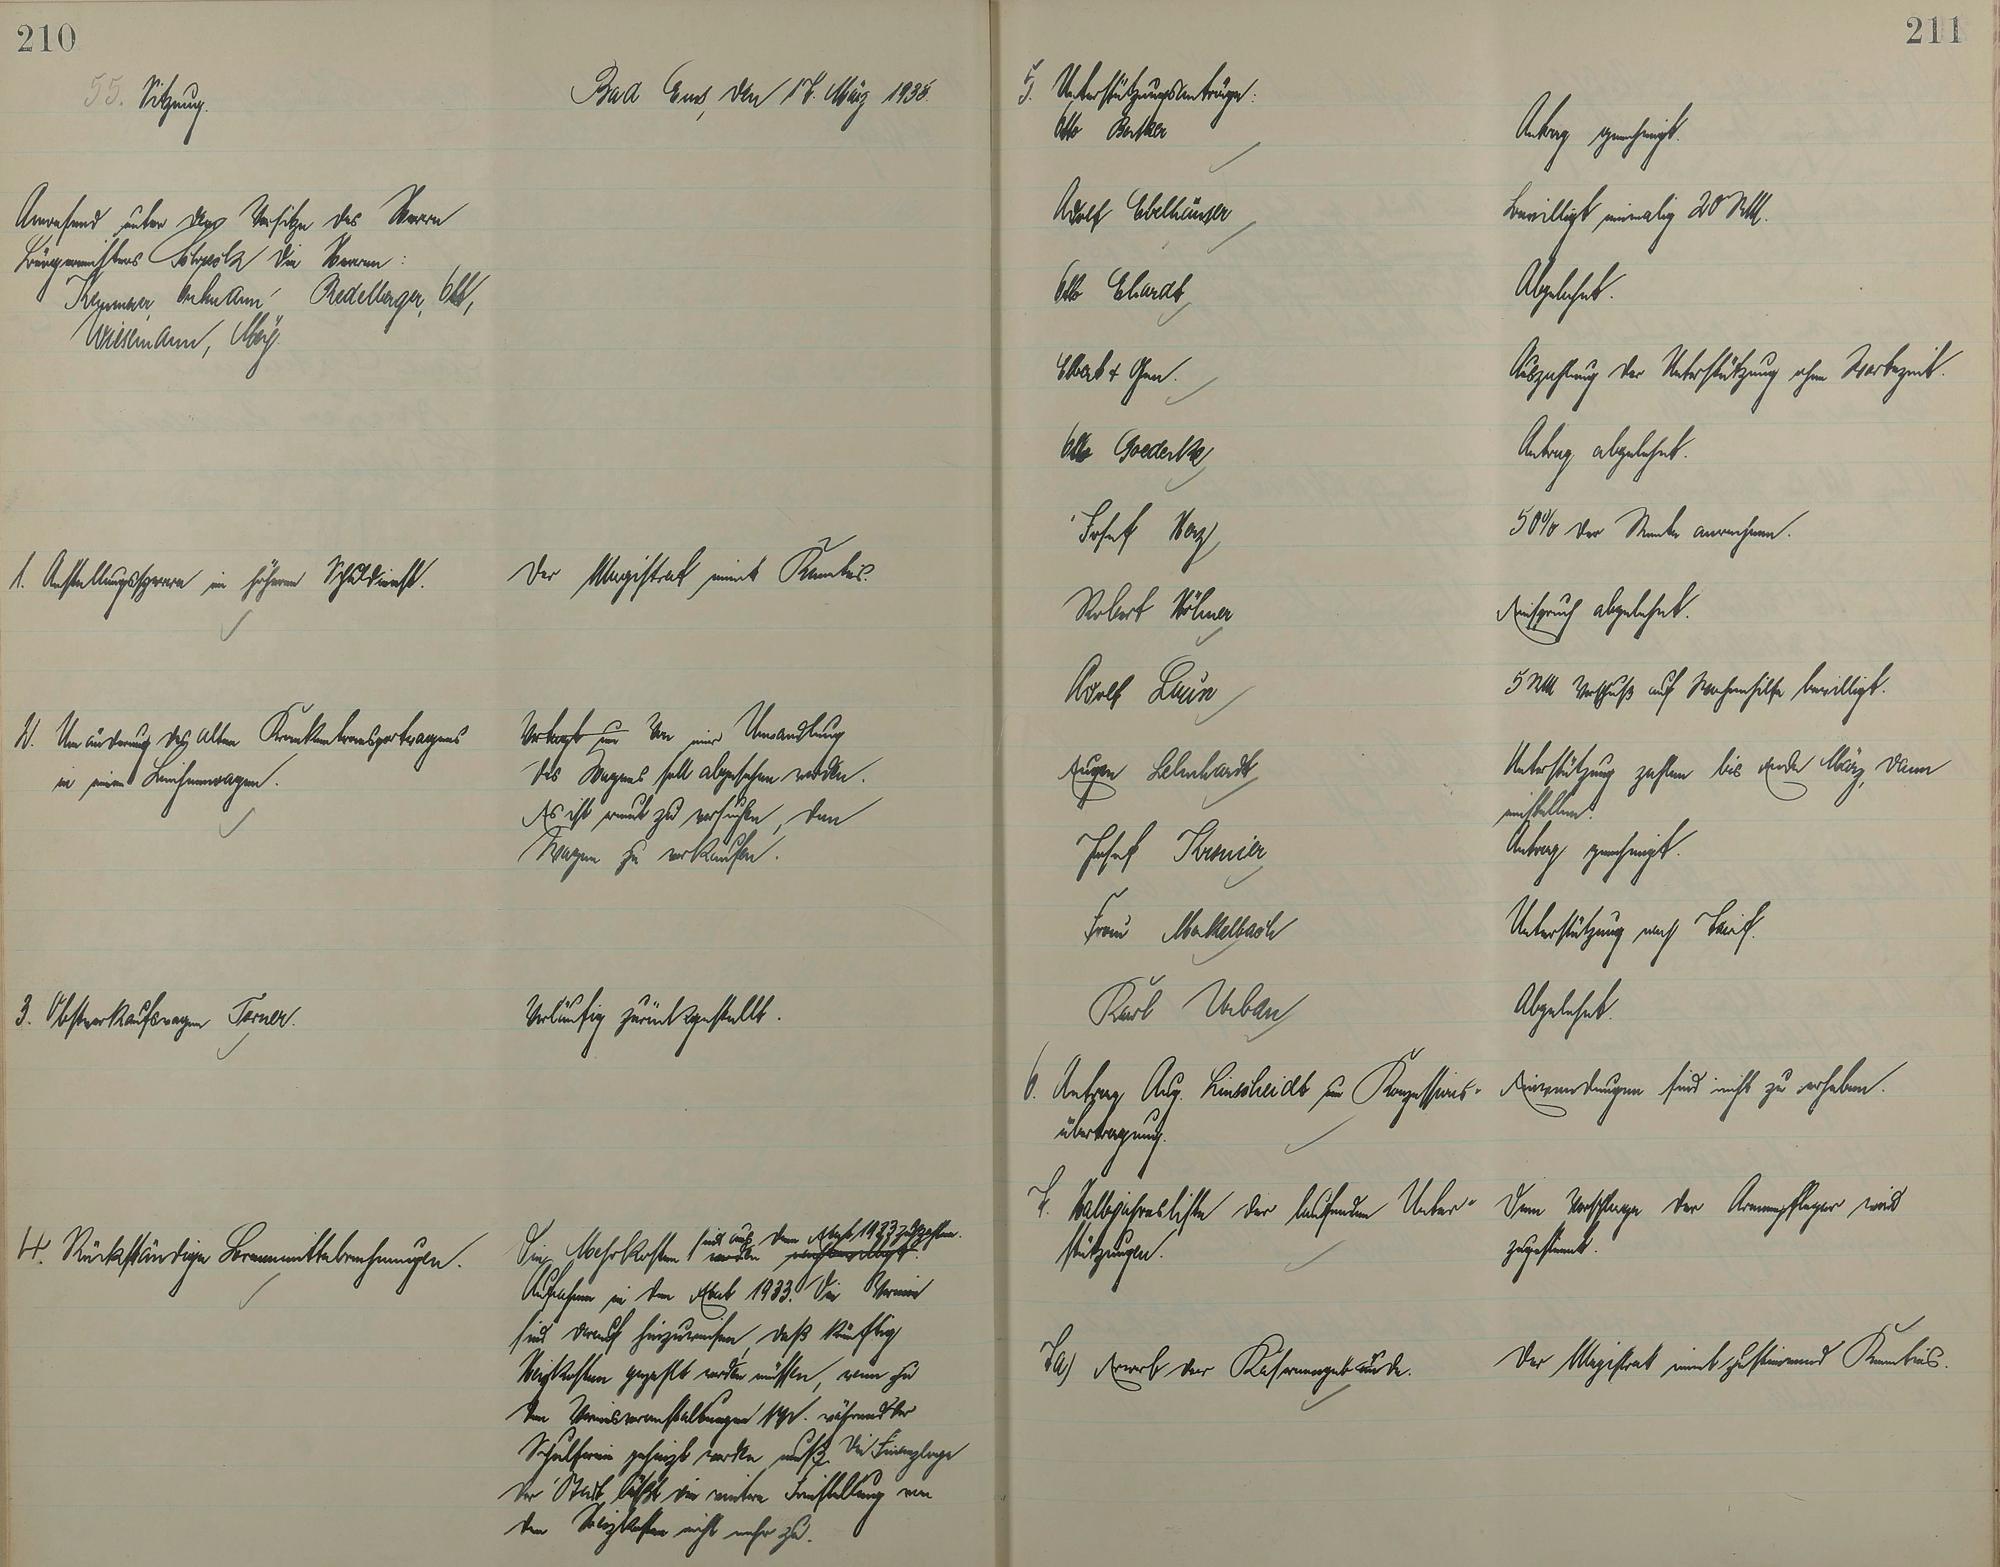 210
55. Sitzung.
Bad Ems, den 17. März 1933.
Anwesend unter dem Vorsitze des Herrn
Bürgermeisters Schreck die Herren:
Redelberger, Ott,
Wiesmann, May.
1. Anstellungssperre im höheren Schuldienst.
Der Magistrat nimmt Kenntnis.
2. Umänderung des alten Krankentransportwagens
in einen Leichenwagen.
Von einer Umwandlung
des Wagens soll abgesehen werden.
Es ist erneut zu versuchen, den
Wagen zu verkaufen.
3. Obstverkaufswagen Forner.
Vorläufig zurückgestellt.
4. Rückständige Brennmittelrechnungen.
Die Mehrkosten sind aus dem Etat 1933 zu zahlen.
Aufnahme in den Etat 1933. Die Vereine
sind darauf hinzuweisen, daß künftig
Heizkosten gezahlt werden müssen, wenn zu
den Vereinsveranstaltungen während der
Schulferien geheizt werden muß. Die Finanzlage
der Stadt läßt die weitere Freistellung von
den Heizkosten nicht mehr zu.
211
5. Unterstützungsanträge:
Otto Becker
Antrag genehmigt.
Adolf Ebelhäuser
Bewilligt einmalig 20 RM.
Otto Ehardt
Abgelehnt.
Elbert & Gen.
Auszahlung der Unterstützung ohne Wartezeit.
Otto Goedecke
Antrag abgelehnt.
Josef Herz
50% der Miete anrechnen.
Robert Hölmer
Einspruch abgelehnt.
Adolf Luin
5 RM Vorschuß auf Wochenhilfe bewilligt.
Eugen Lehnhardt
Unterstützung zahlen bis Ende März, dann
einstellen.
Josef Kremer
Antrag genehmigt.
Frau Mackelbach
Unterstützung nach Tarif.
Karl Urban
Abgelehnt.
6. Antrag Aug. Linscheidt um Konzessions-
übertragung.
Einwendungen sind nicht zu erheben.
7. Halbjahresliste der laufenden Unter-
stützungen.
Dem Vorschlage der Armenpfleger wird
zugestimmt.
7a) Erwerb der Kasernengebäude.
Der Magistrat nimmt zustimmend Kenntnis.